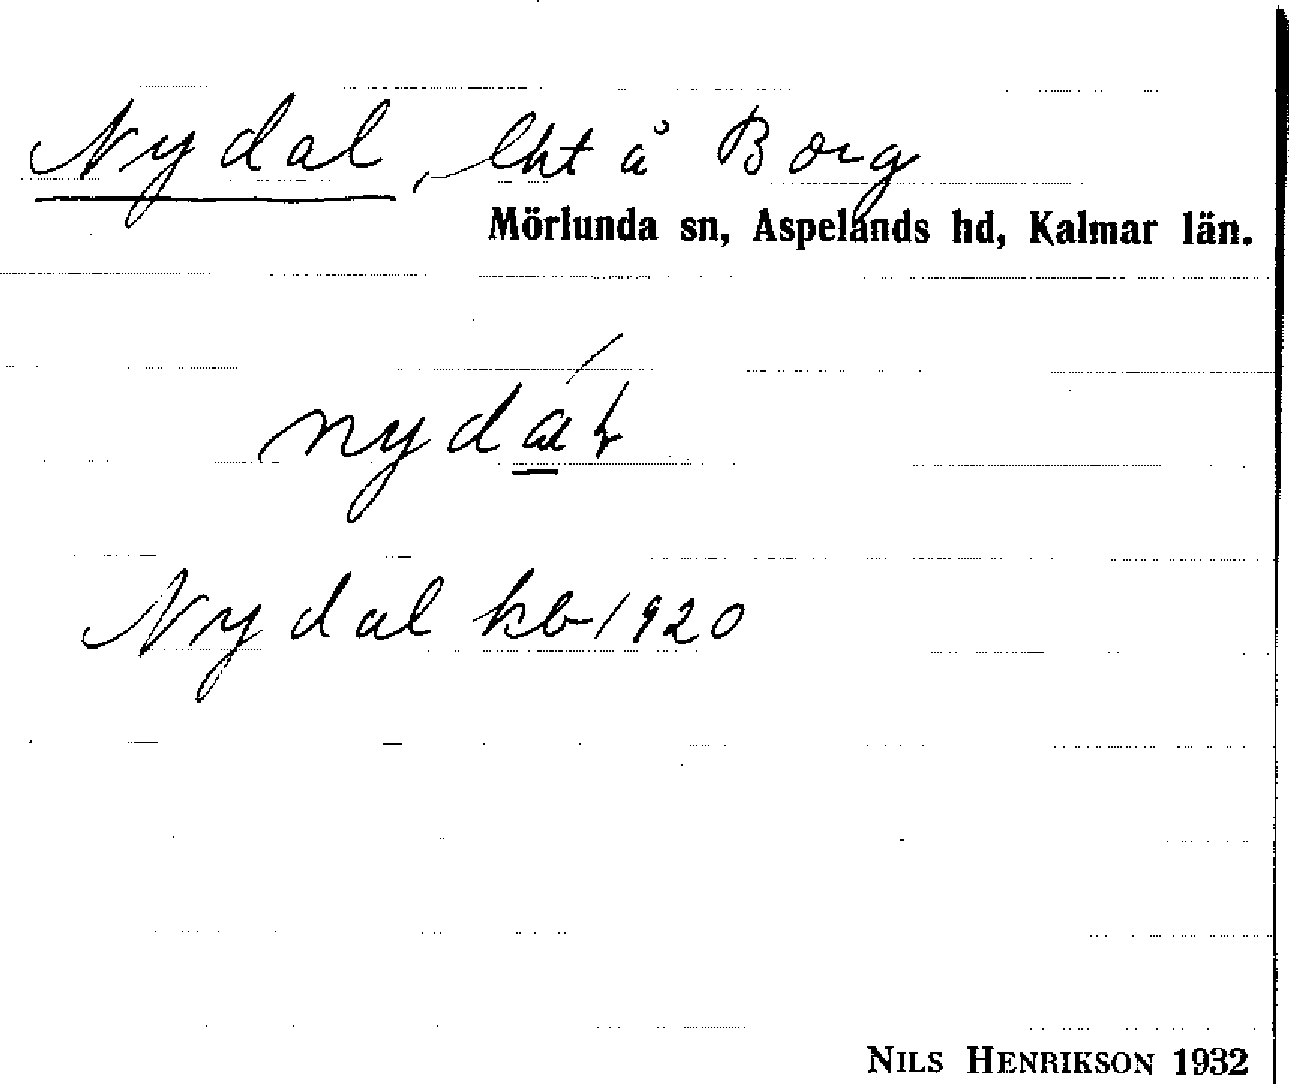 Nydal, lht å Borg
Mörlunda sn, Aspelands hd, Kalmar län.
Nydal kb 1920
NILS HENRIKSON 1932